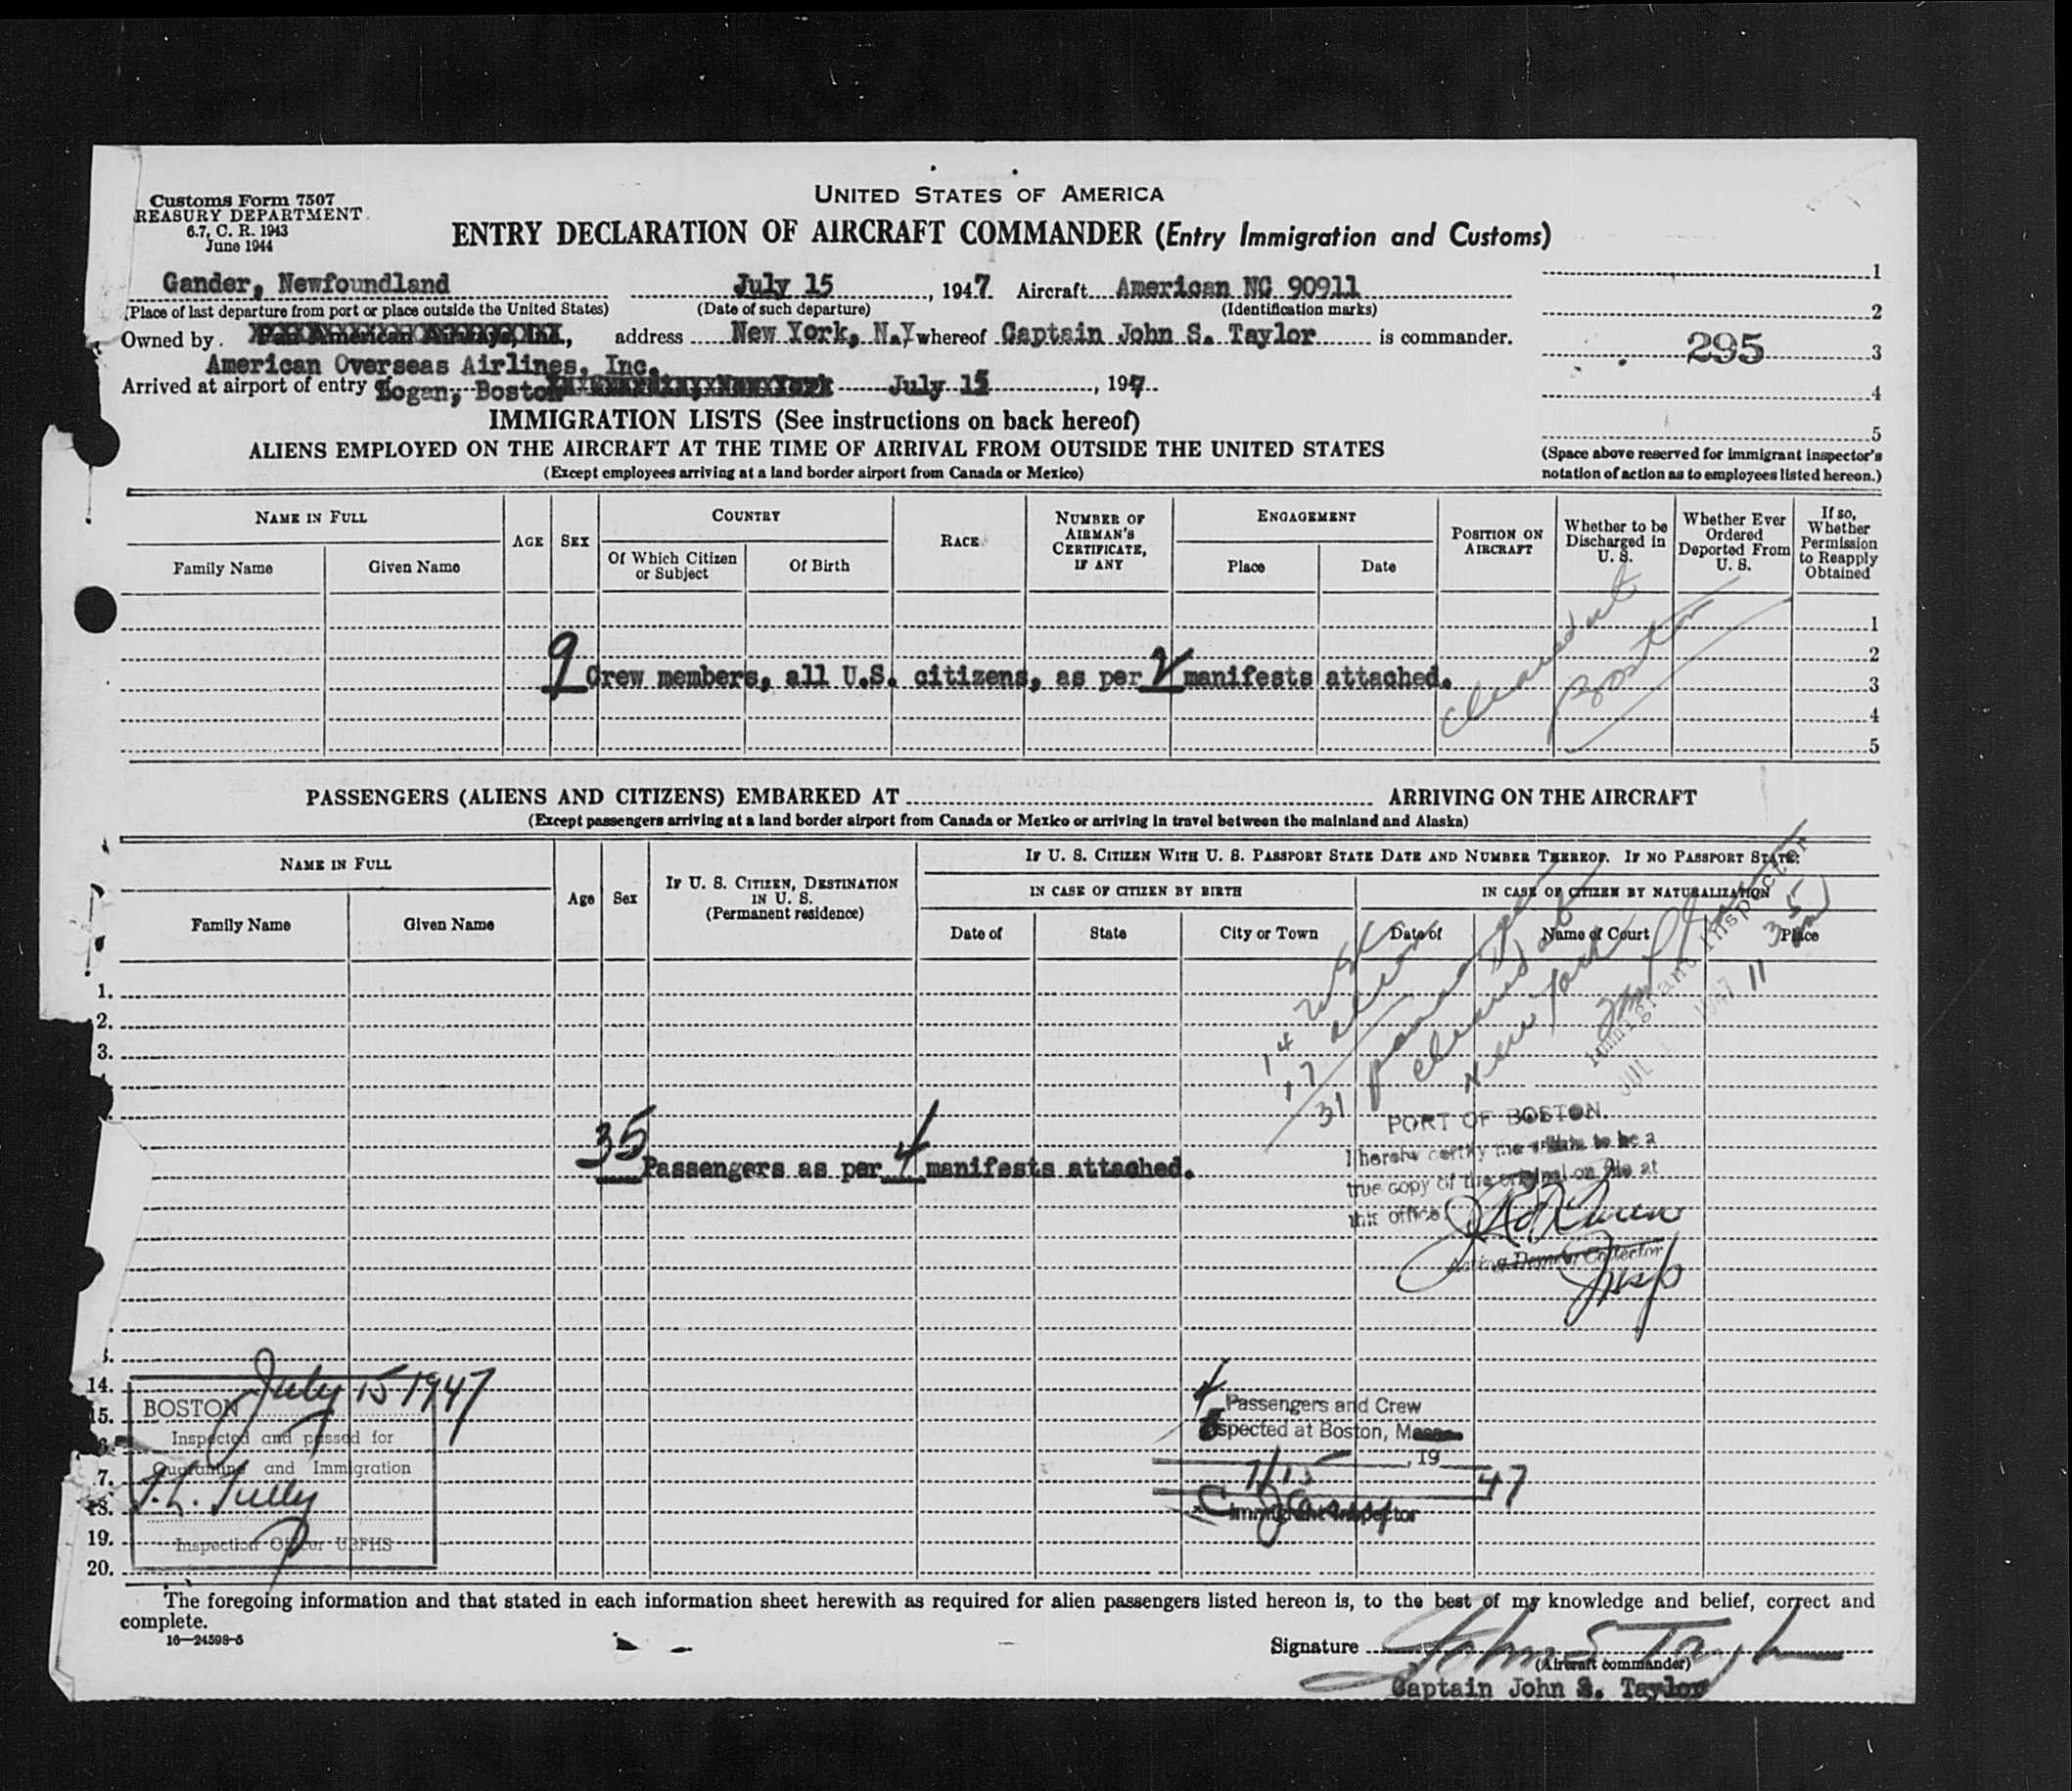 Customs Form 7507
REASURY DEPARTMENT
6.7, C. R. 1943
June 1944
UNITED STATES OF AMERICA
ENTRY DECLARATION OF AIRCRAFT COMMANDER (Entry Immigration and Customs)
Gander, Newfoundland July 15, 1947 Aircraft American NC 90911
(Place of last departure from port or place outside the United States) (Date of such departure) (Identification marks)
Owned by Pan American Airways, Inc., address New York, N.Y whereof Captain John S. Taylor is commander.
American Overseas Airlines, Inc.
Arrived at airport of entry Logan, Boston July 15, 1947
1
2
295 3
4
5
(Space above reserved for immigrant inspector's
notation of action as to employees listed hereon.)
IMMIGRATION LISTS (See instructions on back hereof)
ALIENS EMPLOYED ON THE AIRCRAFT AT THE TIME OF ARRIVAL FROM OUTSIDE THE UNITED STATES
(Except employees arriving at a land border airport from Canada or Mexico)
NAME IN FULL
Family Name Given Name
AGE SEX
COUNTRY
Of Which Citizen
or Subject
Of Birth
RACE
NUMBER OF
AIRMAN'S
CERTIFICATE,
IF ANY
ENGAGEMENT
Place Date
POSITION ON
AIRCRAFT
Whether to be
Discharged in
U. S.
Whether Ever
Ordered
Deported From
U. S.
If so,
Whether
Permission
to Reapply
Obtained
1
2
9 Crew members, all U.S. citizens, as per 2 manifests attached. 3
4
5
cleared at
Boston
PASSENGERS (ALIENS AND CITIZENS) EMBARKED AT ARRIVING ON THE AIRCRAFT
(Except passengers arriving at a land border airport from Canada or Mexico or arriving in travel between the mainland and Alaska)
NAME IN FULL
Family Name Given Name
Age Sex
IF U. S. CITIZEN, DESTINATION
IN U. S.
(Permanent residence)
IF U. S. CITIZEN WITH U. S. PASSPORT STATE DATE AND NUMBER THEREOF. IF NO PASSPORT STATE:
IN CASE OF CITIZEN BY BIRTH IN CASE OF CITIZEN BY NATURALIZATION
Date of State City or Town Date of Name of Court Place
14 USC
17 aliens
31 passengers
cleared at
New York
Immigrant Inspector
JUL 1947
11 35
1.
2.
3.
35 Passengers as per 4 manifests attached.
PORT OF BOSTON
I hereby certify the within to be a
true copy of the original on file at
this office
Acting Deputy Collector
Insp
14.
15.
7.
18.
19.
20.
July 15 1947
BOSTON
Inspected and passed for
Quarantine and Immigration
Inspection Officer USPHS
4 Passengers and Crew
Inspected at Boston, Mass
7/15, 19 47
Immigrant Inspector
The foregoing information and that stated in each information sheet herewith as required for alien passengers listed hereon is, to the best of my knowledge and belief, correct and
complete.
16—24598-5
Signature John S Taylor
(Aircraft commander)
Captain John S. Taylor